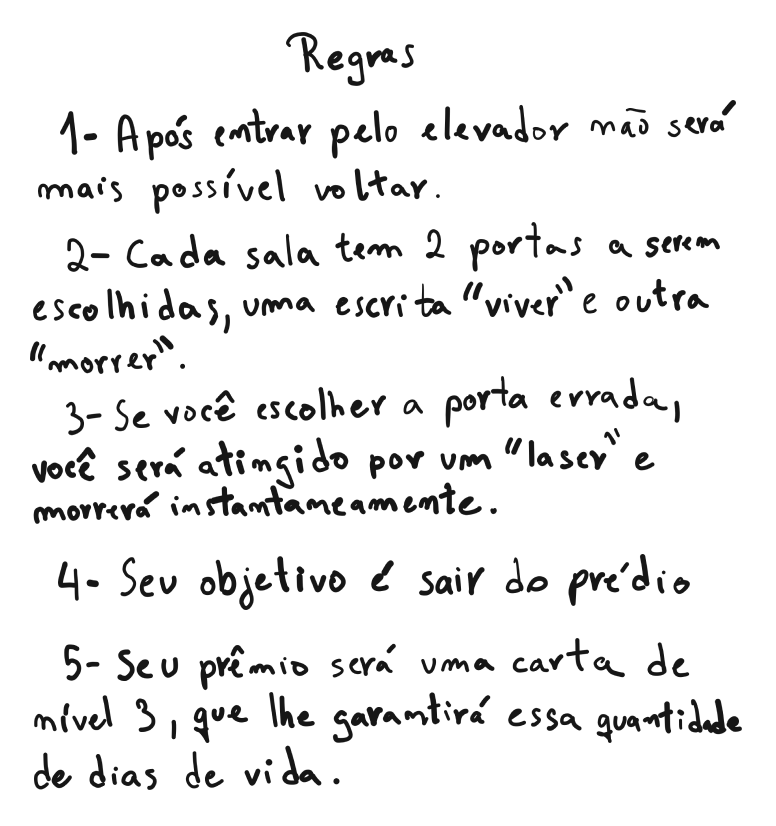 Regras
1- Após entrar pelo elevador não será
mais possível voltar.
2- Cada sala tem 2 portas a serem
escolhidas, uma escrita "viver" e outra
"morrer".
3- Se você escolher a porta errada,
você será atingido por um "laser" e
morrerá instantaneamente.
4- Seu objetivo é sair do prédio
5- Seu prêmio será uma carta de
nível 3, que lhe garantirá essa quantidade
de dias de vida.